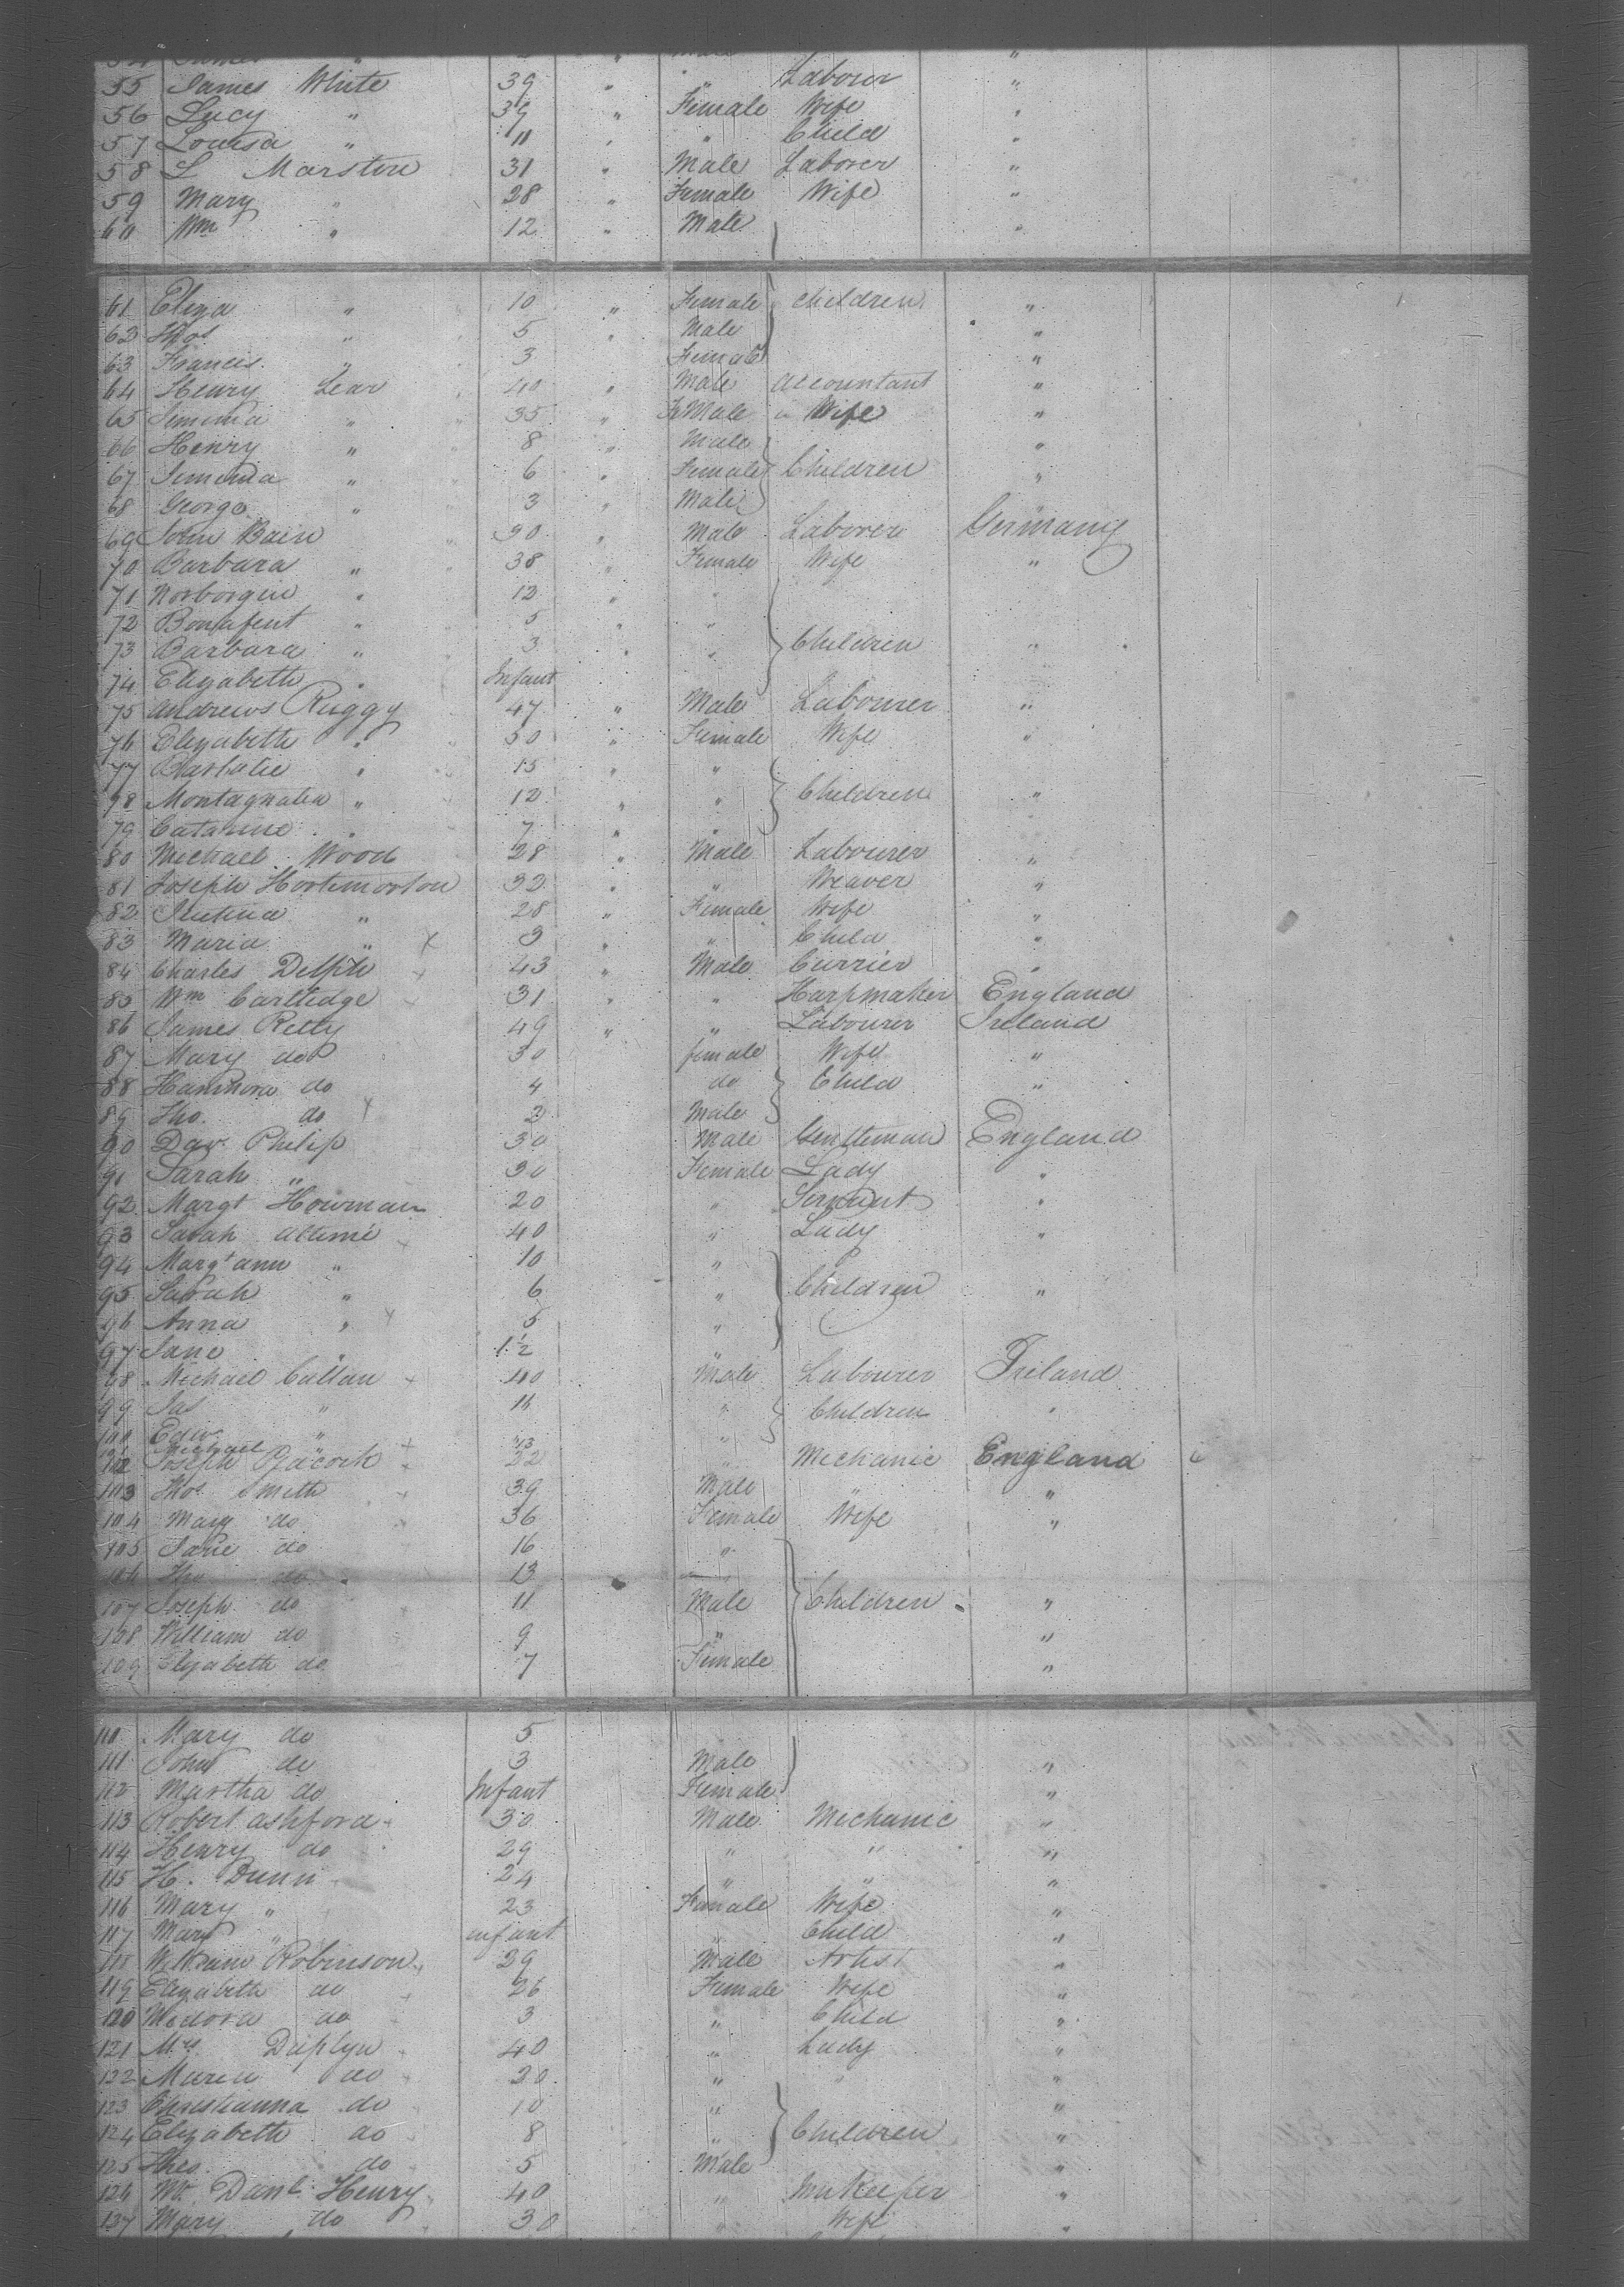 55 James White 39 " " Labour "
56 Lucy " 39 " Female Wife "
57 Louisa " 11 " " Child "
58 S Marston 31 " Male Laborer "
59 Mary " 28 " Female Wife "
60 Wm " 12 " Male "
61 Eliza " 10 " Female Children "
62 Thos " 5 " Male "
63 Francis " 3 Female "
64 Henry Lear 40 " Male accountant "
65 Jemima " 35 " FMale " Wife "
66 Henry " 8 " Male "
67 Jemima " 6 " Female Children "
68 George " 3 " Male
69 John Bain 30 " Male Laborer Germany
70 Barbara " 38 " Female Wife "
71 Norborgin " 12 " "
72 Bonafent " 5 " "
73 Barbara " 3 " " Children "
74 Elizabeth " Infant
75 Andrews Ruggy 47 " Male Labourer "
76 Elizabeth " 50 " Female Wife "
77 " 15 " "
78 Montagnalia " 12 " " Children "
79 Catarine " 7 " "
80 Michael Wood 28 " Male Labourer "
81 Joseph Hortimorton 32 " " Weaver "
82 " 28 " Female Wife "
83 Maria " 3 " " Child "
84 Charles Delph 43 " Male Currier "
85 Wm Cartledge 31 " " Harpmaker England
86 James Retty 49 " " Labourer Ireland
87 Mary do 30 female Wife "
88 Hannhora do 4 do Child "
89 Tho. do 2 Male
90 Dav. Philip 30 Male Gentleman England
91 Sarah " 30 Female Lady "
92 Margt Howman 20 " Servant "
93 Sarah 40 " Lady "
94 Margt ann " 10 "
95 Sarah " 6 " Children "
96 Anna " 5 "
97 Jane 1½ "
98 Michael Callan 40 Male Labourer Ireland
99 Jas " 14 " Children "
100 Edw " "
101 Michael 13
102 Joseph Peacock 22 " Mechanic England
103 Thos Smith 39 Male " "
104 Mary do 36 Female Wife "
105 Jane do 16 "
106 Tho do 13 "
107 Joseph do 11 Male Children "
108 William do 9 " "
109 Elizabeth do 7 Female "
110 Mary do 5
111 John do 3 Male "
112 Martha do Infant Female "
113 Robert ashford 30 Male Mechanic "
114 Henry do 29 " " "
115 H. Dunn 24 " " "
116 Mary " 23 Female Wife "
117 Mary " infant " Child "
118 William Robinson 29 Male Artist "
119 Elizabeth do 26 Female Wife "
120 Medora do 3 " Child "
121 Mrs Daplyn 40 " Lady "
122 Maria do 20 " "
123 Christianna do 10 " "
124 Elizabeth do 8 " Children "
125 Theo. do 5 Male "
126 Mr Danl Henry 40 " Innkeeper "
127 Mary do 30 " Wife "